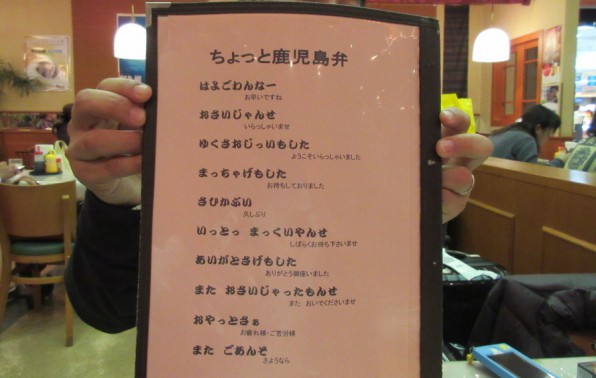 ちょっと鹿児島弁
はよごわんなー
お早いですね
おさいじゃんせ
いらっしゃいませ
ゆくさおじっいもした
ようこそいらっしゃいました
まっちゃげもした
お待ちしておりました
さびかぶい
久しぶり
いっとっ まっくいやんせ
しばらくお待ち下さいませ
あいがとさげもした
ありがとう御座いました
また おさいじゃったもんせ
また おいでくださいませ
おやっとさぁ
お疲れ様・ご苦労様
また ごあんそ
さようなら